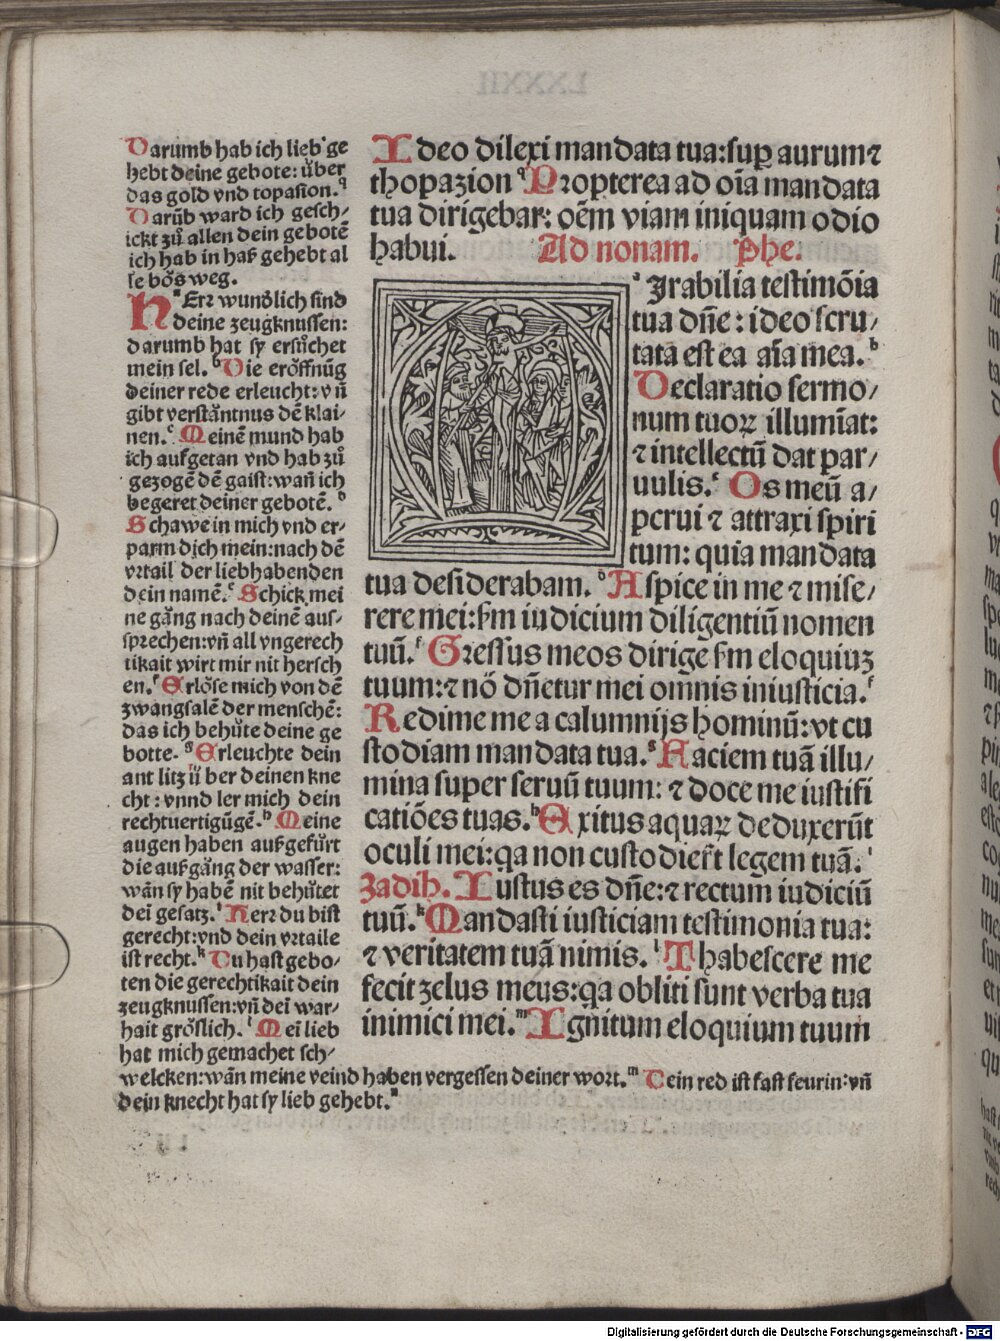 Darumb hab ich lieb ge
hebt deine gebote: über
das gold vnd topasion.q
Darūb ward ich gesch/
ickt zů allen dein gebotē
ich hab in haß gehebt al
le bôs weg.
HErr wundlich sind
deine zeugknussen:
darumb hat sy ersůchet
mein sel.b Die eröffnūg
deiner rede erleucht: vñ
gibt verståntnus dē klai-
nen.c Meinē mund hab
ich aufgetan vnd hab zů
gezogē dē gaist: wañ ich
begeret deiner gebotē.d
Schawe in mich vnd er-
parm dich mein: nach dē
vrtail der liebhabenden
dein namē.e Schick mei
ne gång nach deinē aus-
sprechen: vñ all vngerech
tikait wirt mir nit hersch
en.f Erlöse mich von dē
zwangsalē der menschē:
das ich behüte deine ge
botte.g Erleuchte dein
ant litz ü ber deinen kne
cht: vnnd ler mich dein
rechtuertigūgē.h Meine
augen haben außgefürt
die außgång der wasser:
wān sy habē nit behůtet
dei gesatz.i Herr du bist
gerecht: vnd dein vrtaile
ist recht.k Du hast gebo-
ten die gerechtikait dein
zeugknussen: vñ dei war-
hait größlich.l Mei lieb
hat mich gemachet sch/
welcken: wān meine veind haben vergessen deiner wort.m Dein red ist fast feurin: vñ
dein knecht hat sy lieb gehebt.n
Ideo dilexi mandata tua: sup̄ aurum ⁊
thopazion q Propterea ad oīa mandata
tua dirigebar: oēm viam iniquam odio
habui. Ad nonam. Phe.
a Irabilia testimōia
tua dñe: ideo scru/
tata est ea aīa mea.b
Declaratio sermo/
num tuoꝝ illumīat:
⁊ intellectū dat par/
uulis.c Os meū a/
perui ⁊ attraxi spiri
tum: quia mandata
tua desiderabam.d Aspice in me ⁊ mise/
rere mei: ẜm iudicium diligentiū nomen
tuū.e Gressus meos dirige ẜm eloquiuꝫ
tuum: ⁊ nō dñetur mei omnis iniusticia.f
Redime me a calumnijs hominū: vt cu
stodiam mandata tua.g Faciem tuā illu/
mina super seruū tuum: ⁊ doce me iustifi
catiōes tuas.h Exitus aquaꝝ deduxerūt
oculi mei: qa non custodier̄t legem tuā.i
Zadih. Iustus es dñe: ⁊ rectum iudiciū
tuū.k Mandasti iusticiam testimonia tua:
⁊ veritatem tuā nimis.l Thabescere me
fecit zelus meus: qa obliti sunt verba tua
inimici mei.m Ignitum eloquium tuum
Digitalisierung gefördert durch die Deutsche Forschungsgemeinschaft - DFG